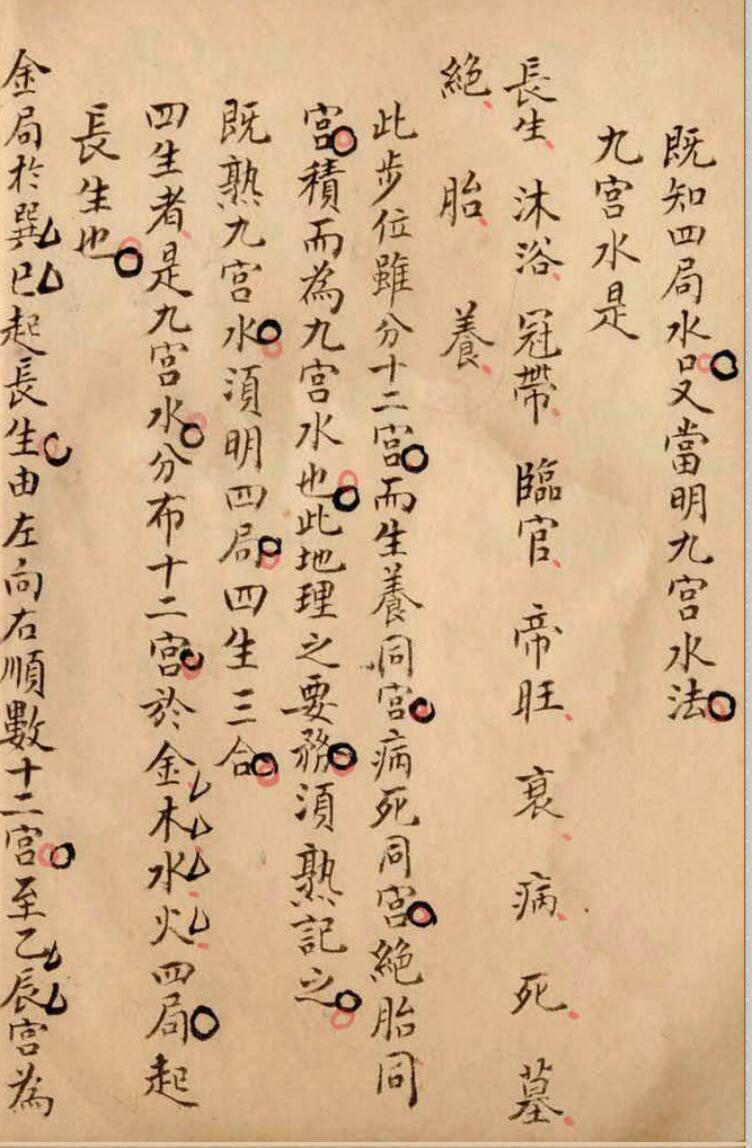 既知四局水口又當明九宮水法
九宮水是
長生 沐浴 冠帶 臨官 帝旺 衰 病 死 墓
絕 胎 養
此步位雖分十二宮而生養同宮病死同宮絕胎同
宮積而為九宮水也此地理之要務須熟記之
既熟九宮水須明四局四生三合
四生者是九宮水分布十二宮於金木水火四局起
長生也
金局於巽巳起長生由左向右順數十二宮至乙辰宮為